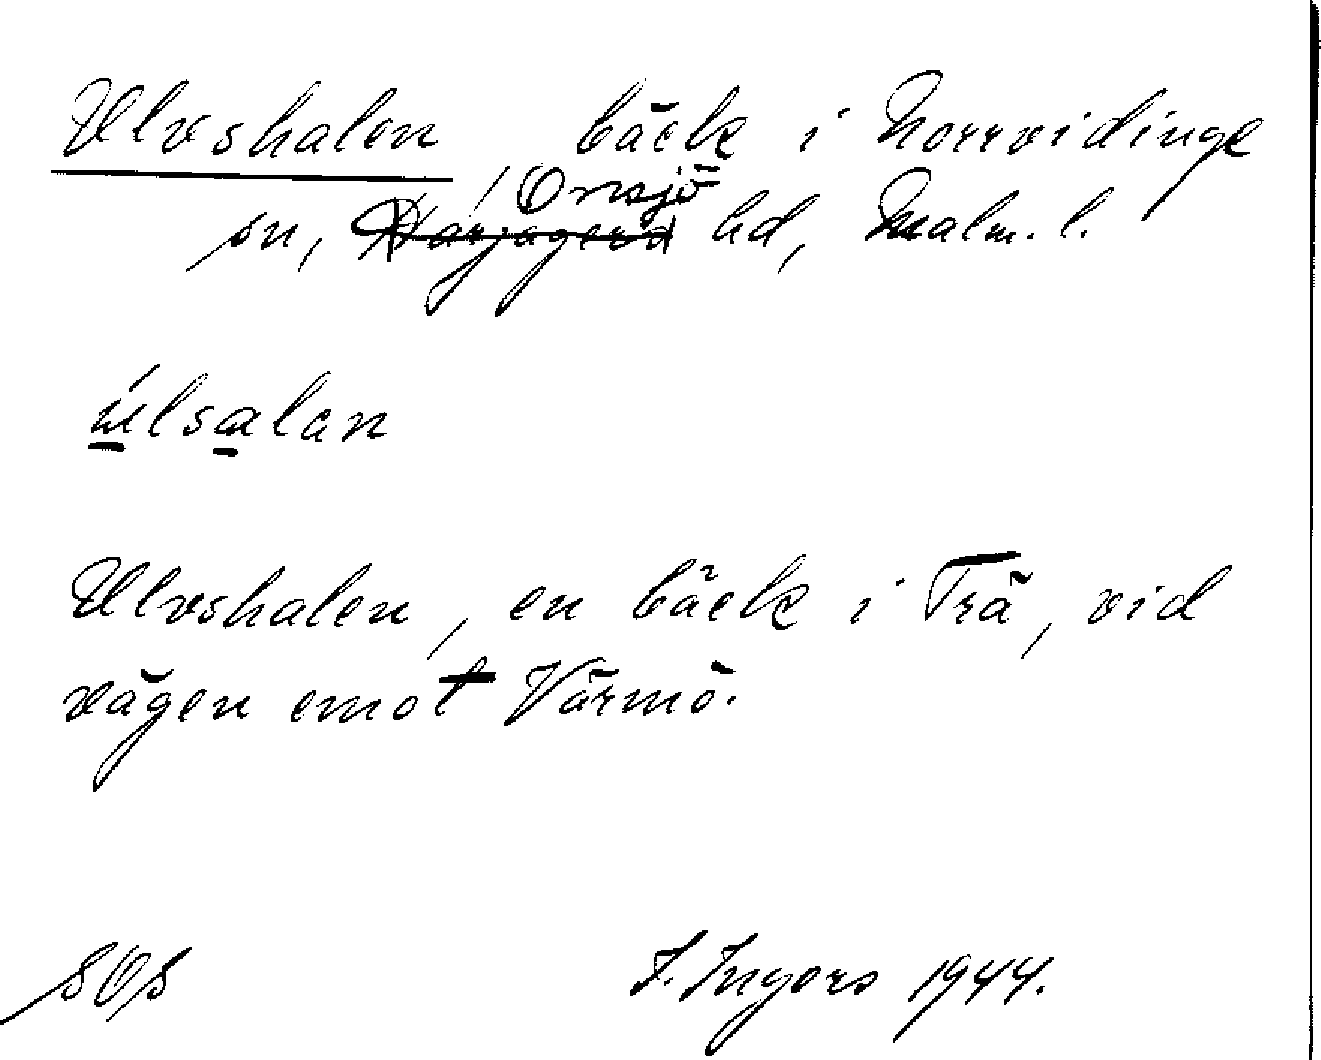 Ulvshalen, bäck i Norrvidinge
Onsjö
sn, Harjagers hd, Malm. l.
úlsalan
Ulvshalen, en bäck i Trä, vid
vägen emot Värmö.
SOS I. Ingers 1944.